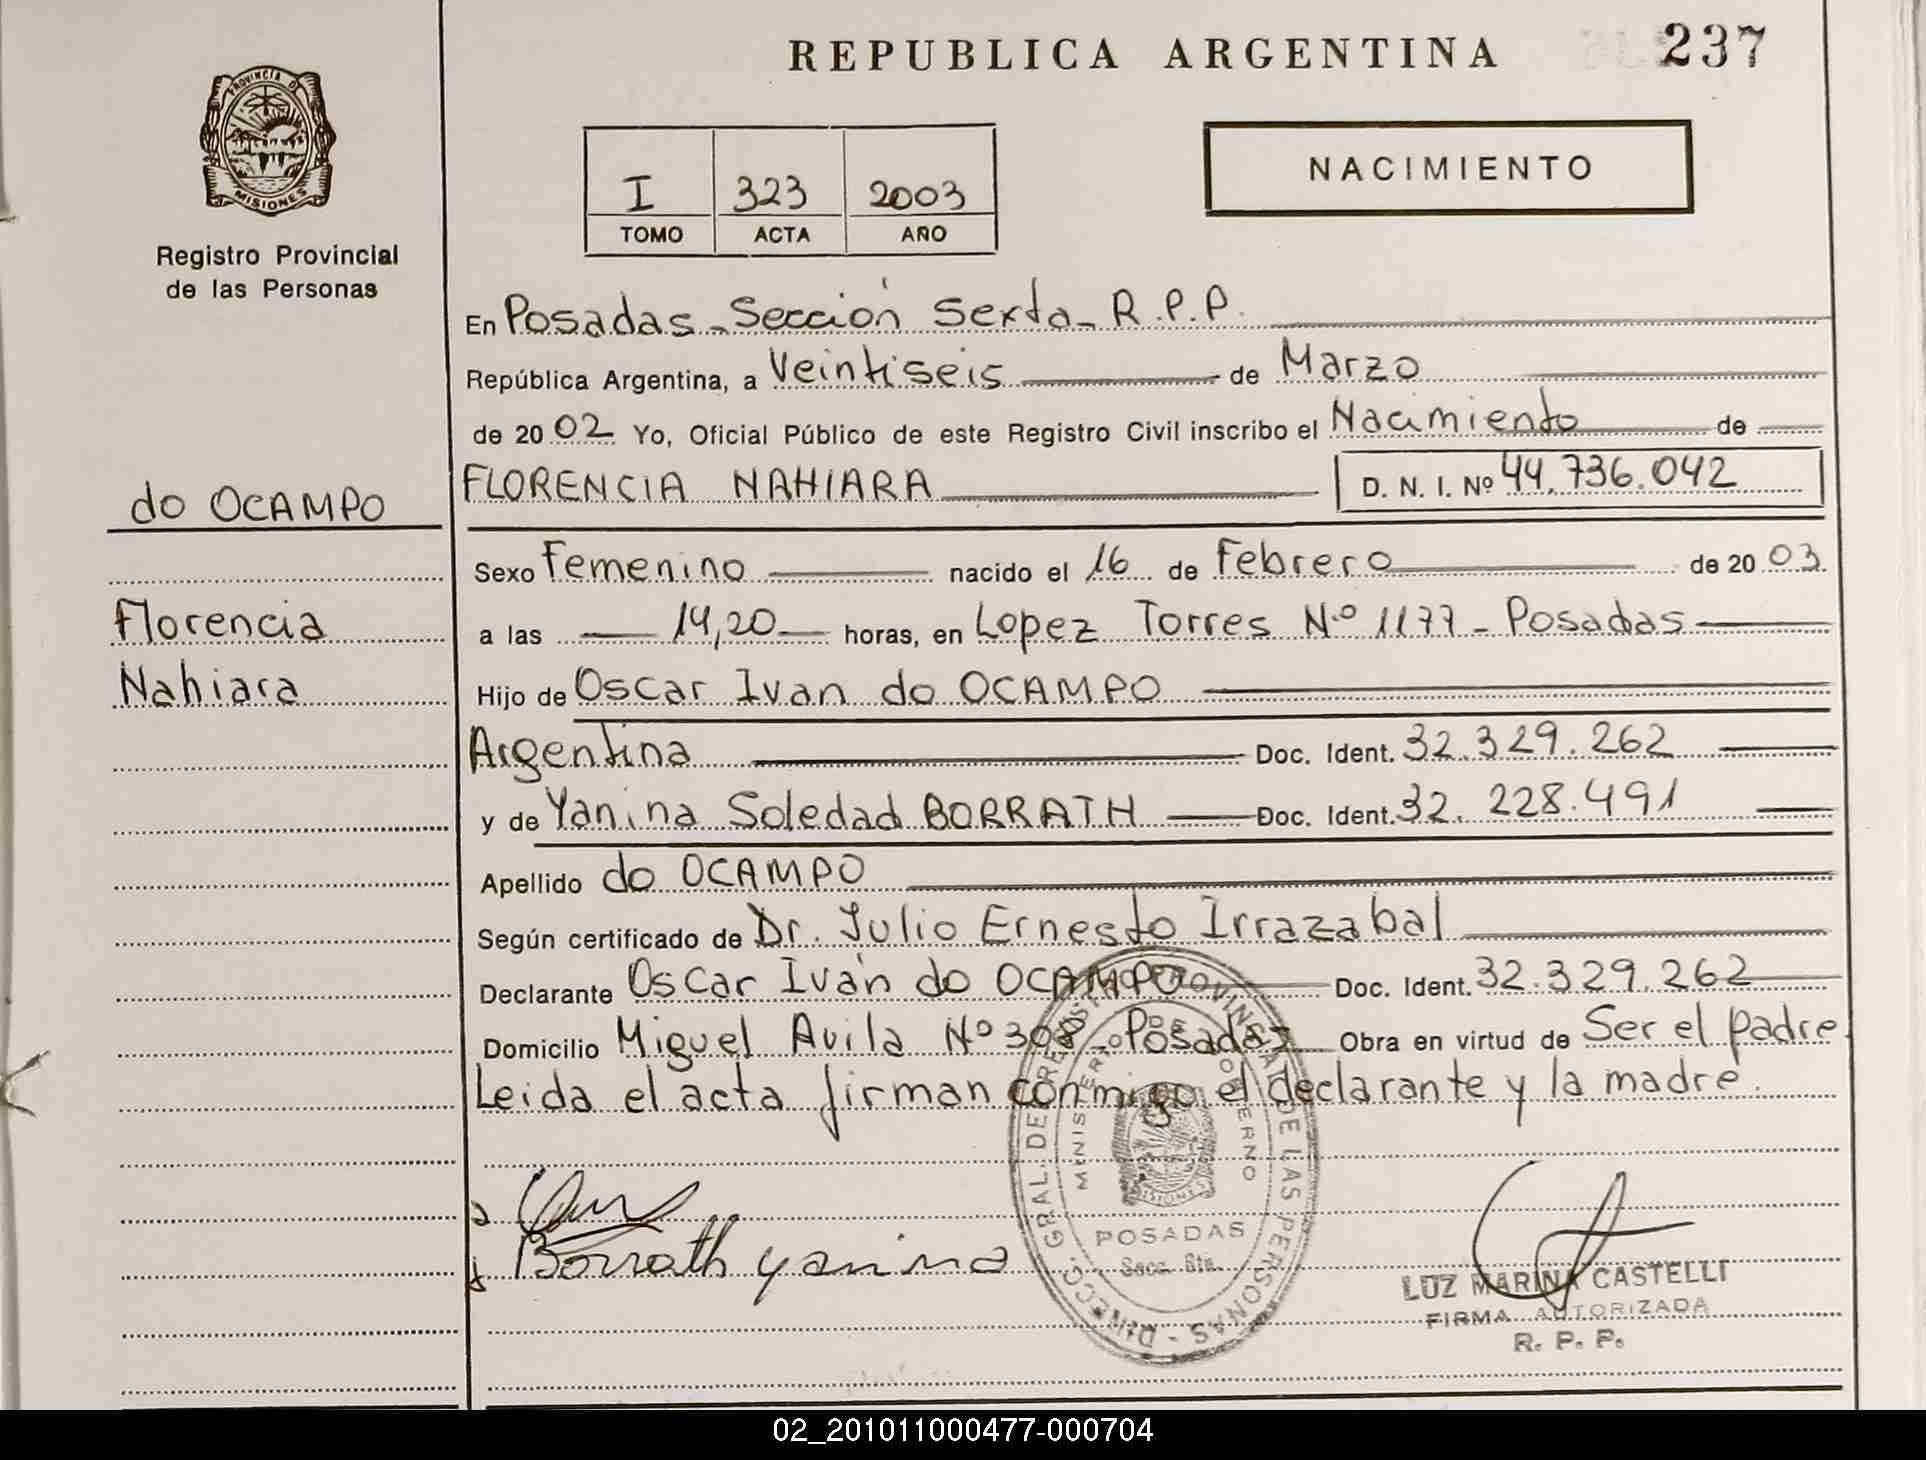 REPUBLICA ARGENTINA 237
PROVINCIA DE
MISIONES
Registro Provincial
de las Personas
I 323 2003
TOMO ACTA AÑO
NACIMIENTO
En Posadas - Sección Sexta - R.P.P.
República Argentina, a Veintiseis de Marzo
de 2002 Yo, Oficial Público de este Registro Civil inscribo el Nacimiento de
FLORENCIA NAHIARA D. N. I. Nº 44.736.042
do OCAMPO
Florencia
Nahiara
Sexo Femenino nacido el 16 de Febrero de 2003.
a las 14,20 horas, en Lopez Torres Nº 1177 - Posadas
Hijo de Oscar Ivan do OCAMPO
Argentina Doc. Ident. 32.329.262
y de Yanina Soledad BORRATH Doc. Ident. 32.228.491
Apellido do OCAMPO
Según certificado de Dr. Julio Ernesto Irrazabal
Declarante Oscar Iván do OCAMPO Doc. Ident. 32.329.262
Domicilio Miguel Avila Nº 308 - Posadas Obra en virtud de Ser el padre.
Leida el acta firman conmigo el declarante y la madre.
DIRECC. GRAL. DEL REGISTRO PROVINCIAL DE LAS PERSONAS
MINISTERIO DE GOBIERNO
MISIONES
POSADAS
Secc. 6ta.
Borrath yanina
LUZ MARINA CASTELLI
FIRMA AUTORIZADA
R. P. P.
02_201011000477-000704